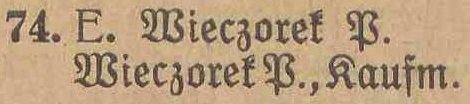 74. E. Wieczorek P.
Wieczorek P., Kaufm.